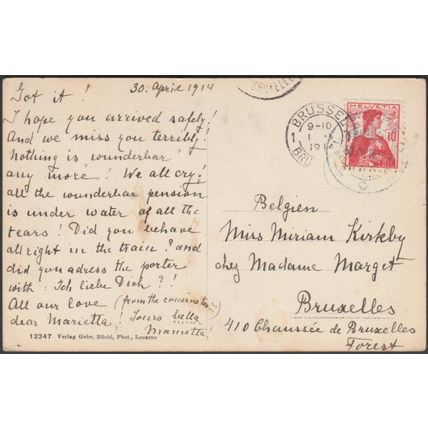 30. April 1914
Got it!
I hope you arrived safely!
And we miss you terribly!
Nothing is wunderbar
any more! We all cry!
all the wunderbar pension
is under water of all the
tears! Did you behave
allright in the train? and
did you adress the porter
with: Ich liebe Dich?!
All our love (from the
dear Marietta! Yours bella
Mametta!
12347 Verlag Gebr. Büchi, Phot., Locarno
BRUXELLES
BRUSSEL
9-10
1
191
BRU
HELVETIA
10
Belgien
Miss Miriam Kirkby
chez Madame Marget
Bruxelles
410 Chaussée de Bruxelles
Forest